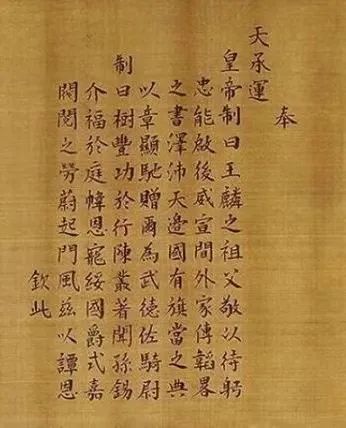 奉
天承運
皇帝制曰王麟之祖父敬以待躬
忠能啟後威宣間外家傳韜畧
之書澤沛天邊國有旗當之典
以章顯馳贈爾為武德佐騎尉
制曰樹豐功於行陳叢著聞孫錫
介福於庭幃恩寵綏國爵式嘉
閥閱之勞蔚起門風茲以譚恩
欽此